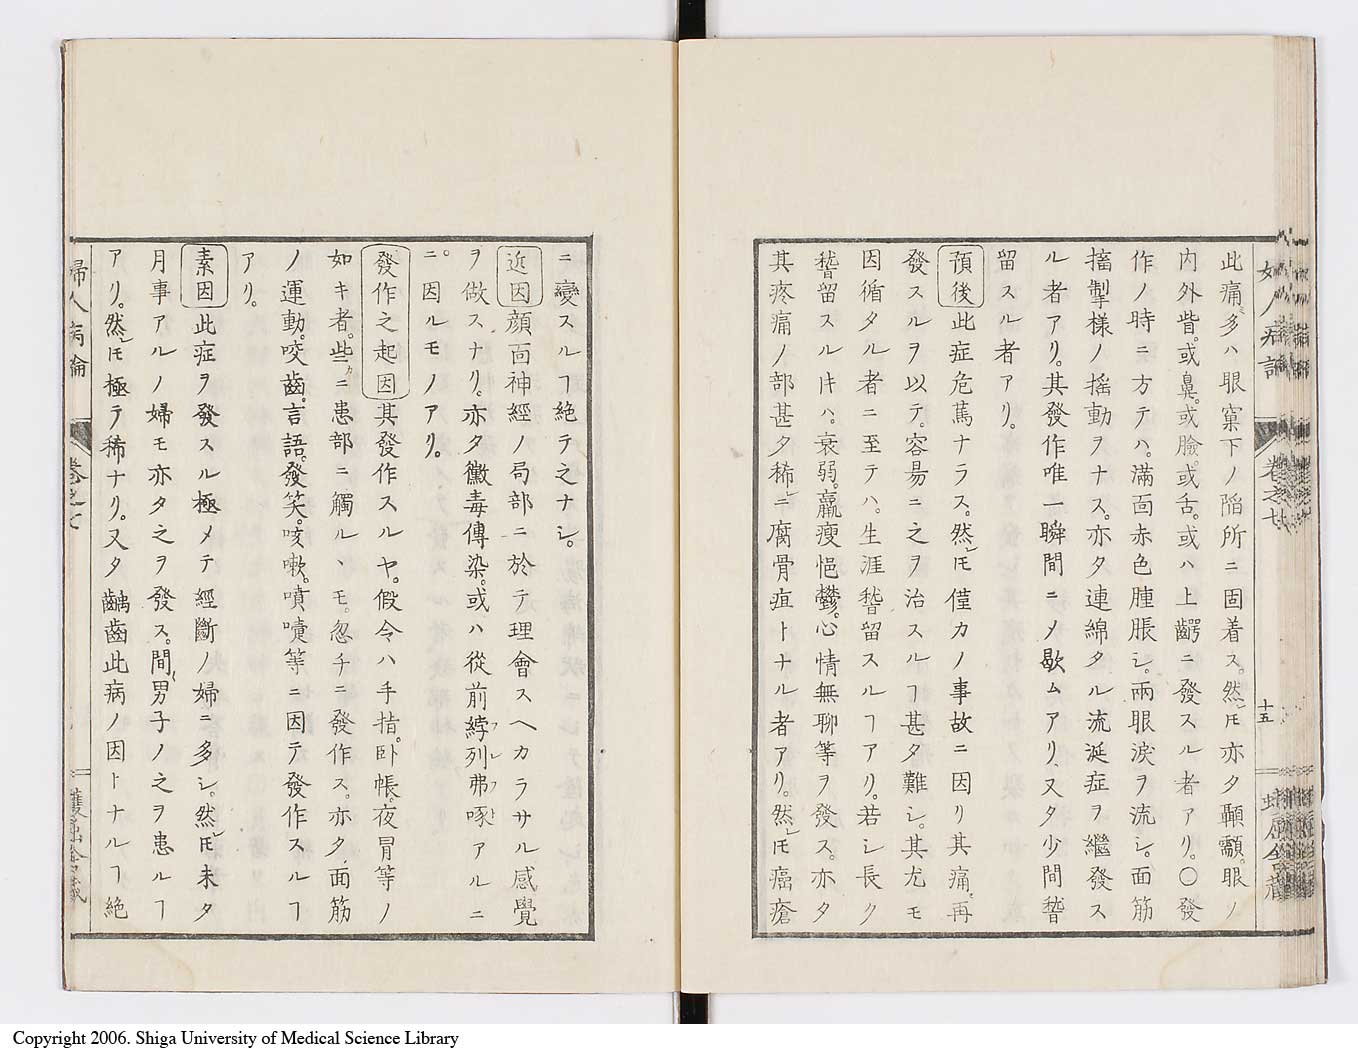 此痛多ハ眼窠下ノ陷所ニ固着ス。然レ𪜈亦タ顳顬。眼ノ
内外眥。或鼻。或臉。或舌。或ハ上齶ニ發スル者アリ。〇發
作ノ時ニ方テハ。滿面赤色腫脹シ。兩眼淚ヲ流シ。面筋
搐掣樣ノ搖動ヲナス。亦タ連綿タル流涎症ヲ繼發ス
ル者アリ。其發作唯一瞬間ニメ歇ムアリ、又タ少間稽
留スル者アリ。
預後 此症危篤ナラス。然レ𪜈僅カノ事故ニ因リ其痛再
發スルヲ以テ。容易ニ之ヲ治スルヿ甚タ難シ。其尤モ
因循タル者ニ至テハ。生涯稽留スルヿアリ。若シ長ク
稽留スル𪜈ハ。衰弱。羸瘦悒鬱。心情無聊等ヲ發ス。亦タ
其疼痛ノ部甚タ稀レニ腐骨疽トナル者アリ。然レ𪜈癌瘡
女人病論 卷之七 十五
ニ變スルヿ絶テ之ナシ。
近因 顔面神經ノ局部ニ於テ理會スヘカラサル感覺
ヲ做スナリ。亦タ黴毒傳染。或ハ從前綍列弗啄アルニ
ニ。因ルモノアリ。
發作之起因 其發作スルヤ。假令ハ手指。卧帳。夜冐等ノ
如キ者。些カニ患部ニ觸ルヽモ。忽チニ發作ス。亦タ面筋
ノ運動。咬齒。言語。發笑。咳嗽。噴嚏等ニ因テ發作スルヿ
アリ。
素因 此症ヲ發スル極メテ經斷ノ婦ニ多シ。然レ𪜈未タ
月事アルノ婦モ亦タ之ヲ發ス。間〻男子ノ之ヲ患ルヿ
アリ。然レ𪜈極テ稀ナリ。又タ齲齒此病ノ因トナルヿ絶
婦人病論 卷之七
Copyright 2006. Shiga University of Medical Science Library